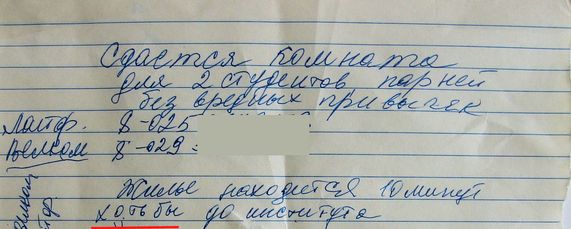 Сдастся комната
для 2 студентов парней
без вредных привычек
Лайф. 8-025
Велком 8-029
Жилье находится 10 минут
хотьбы до института